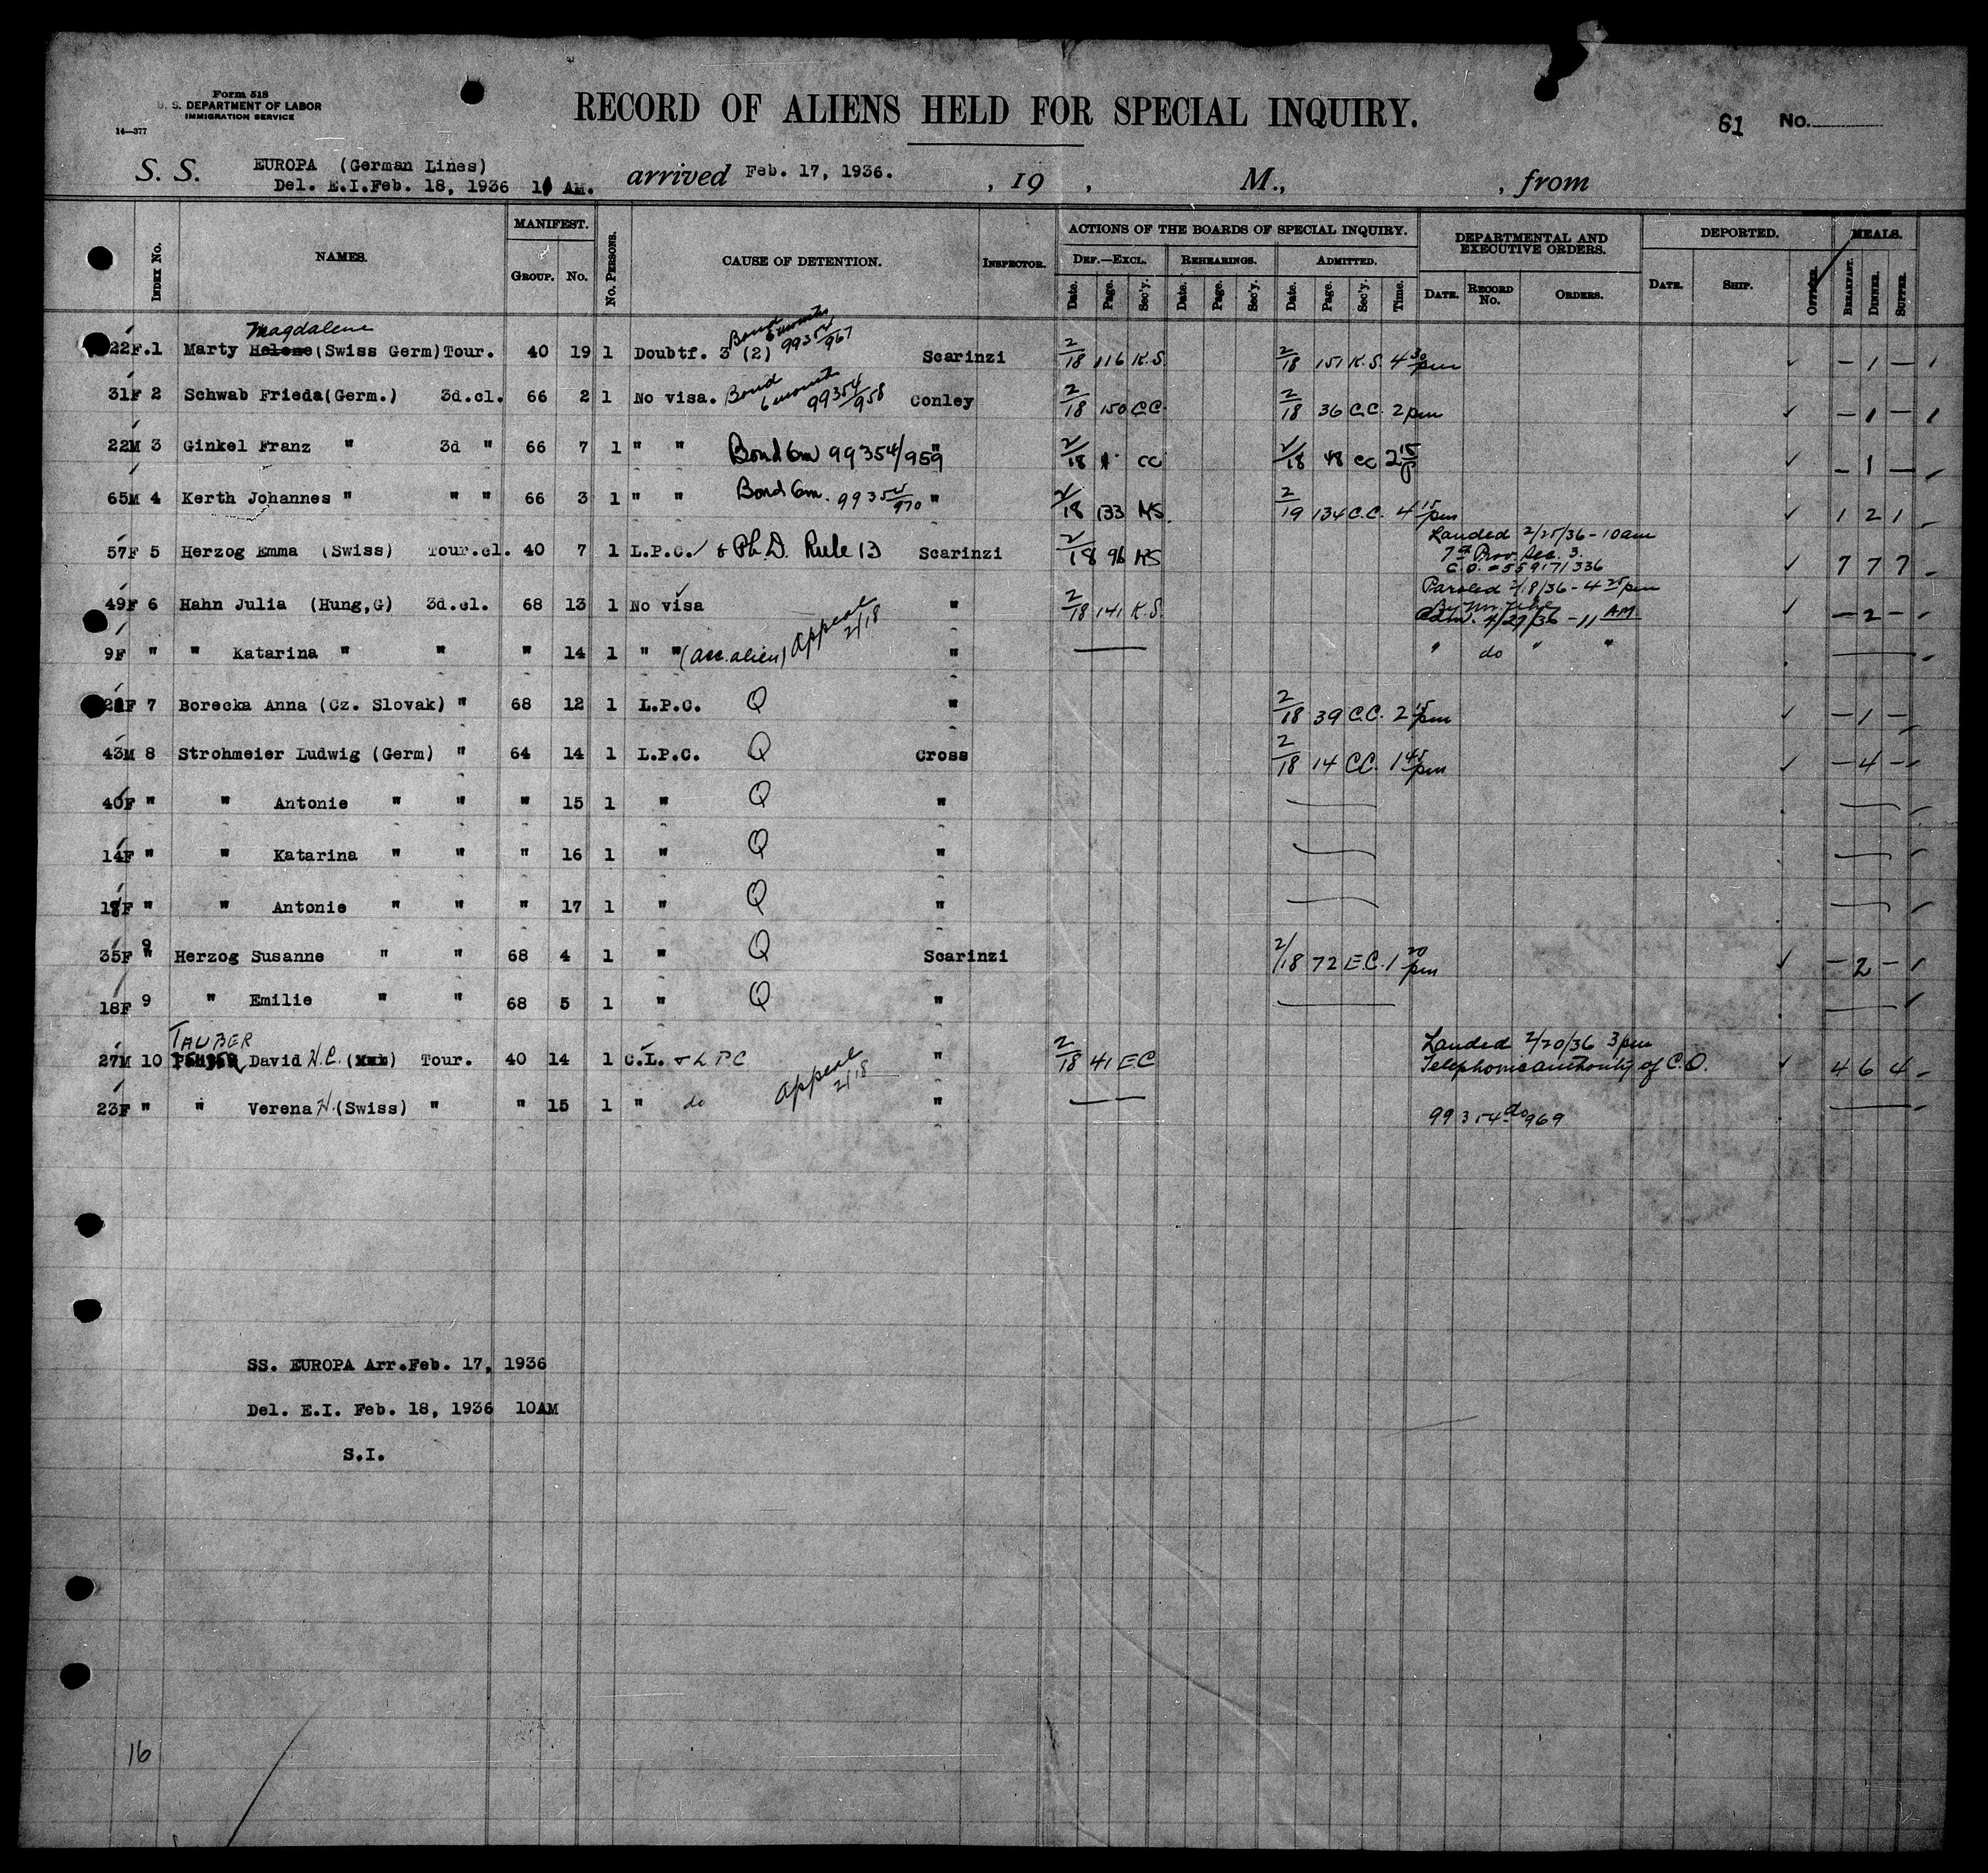 Form 518
U. S. DEPARTMENT OF LABOR
IMMIGRATION SERVICE
14—377
RECORD OF ALIENS HELD FOR SPECIAL INQUIRY.
61 No.
S. S. EUROPA (German Lines) arrived Feb. 17, 1936. , 19 , M., , from
Del. E.I.Feb. 18, 1936 AM.
Index No. NAMES. MANIFEST. GROUP. No. No. PERSONS. CAUSE OF DETENTION. INSPECTOR. ACTIONS OF THE BOARDS OF SPECIAL INQUIRY. DEF.—EXCL. REHEARINGS. ADMITTED. DEPARTMENTAL AND EXECUTIVE ORDERS. DEPORTED. MEALS.
Date. Page. Sec'y. Date. Page. Sec'y. Date. Page. Sec'y. Time. DATE. RECORD No. ORDERS. DATE. SHIP. OFFICER. BREAKFAST. DINNER. SUPPER.
Magdalene Bond 6 months
22F.1 Marty Helene (Swiss Germ) Tour. 40 19 1 Doubtf. 3 (2) Scarinzi 2/18 116 K.S. 2/18 151 K.S. 4 30 pm — 1 —
31F 2 Schwab Frieda(Germ.) 3d.cl. 66 2 1 No visa. Bond 6 months 99354/958 Conley 2/18 150 C.C. 2/18 36 C.C. 2 pm — 1 —
22M 3 Ginkel Franz " 3d " 66 7 1 " " Bond 6m 99354/959 " 2/18 CC 2/18 48 CC 2 15 — 1 —
65M 4 Kerth Johannes " " " 66 3 1 " " Bond 6m. " 2/18 133 2/19 134 C.C. 4 15 pm 1 2 1
57F 5 Herzog Emma (Swiss) Tour.cl. 40 7 1 L.P.C. & Ph.D. Rule 13 Scarinzi 2/18 96 Landed 2/25/36 - 10am 7 7 7
7th Prov. Sec. 3.
C.O. - 55917/336
49F 6 Hahn Julia (Hung,G) 3d.cl. 68 13 1 No visa " 2/18 141 K.S. Paroled 2/18/36 - 4 25 pm — 2 —
Adm. 4/27/36 - 11 AM
9F " " Katarina " " " 14 1 " " (acc. alien) Appeal 2/18 " " do " "
F 7 Borecka Anna (Cz. Slovak) " 68 12 1 L.P.C. Q " 2/18 39 C.C. 2 15 pm — 1 —
43M 8 Strohmeier Ludwig (Germ) " 64 14 1 L.P.C. Q Cross 2/18 14 C.C. 1 45 pm — 4 —
40F " " Antonie " " " 15 1 " Q "
14F " " Katarina " " " 16 1 " Q "
F " " Antonie " " " 17 1 " Q "
35F 9 " Herzog Susanne " " 68 4 1 " Q Scarinzi 2/18 72 E.C. 1 20 pm — 2 —
18F 9 " Emilie " " 68 5 1 " Q "
TAUBER
27M 10 David H.C. Tour. 40 14 1 C.L. & L P C " 2/18 41 E C Landed 2/20/36 3pm 4 6 4
Telephonic authority of C.O.
23F " " Verena H. (Swiss) " " 15 1 " do Appeal 2/18 " do
99354-969
SS. EUROPA Arr.Feb. 17, 1936
Del. E.I. Feb. 18, 1936 10AM
S.I.
16